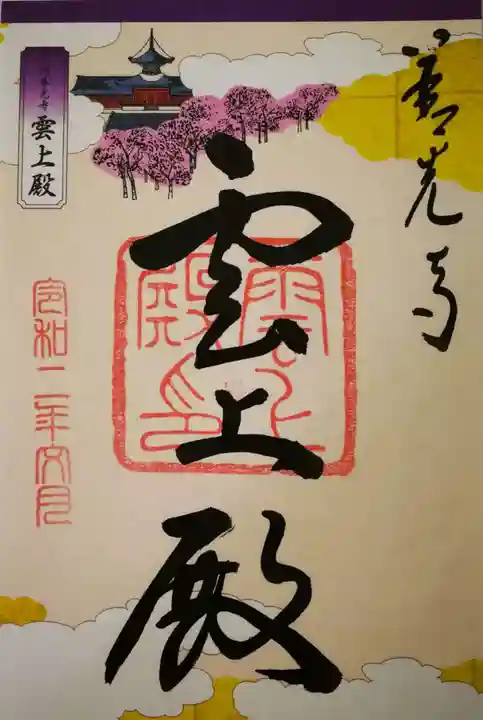 善光寺
雲上殿
雲上殿印
善光寺
雲上殿
令和二年六月